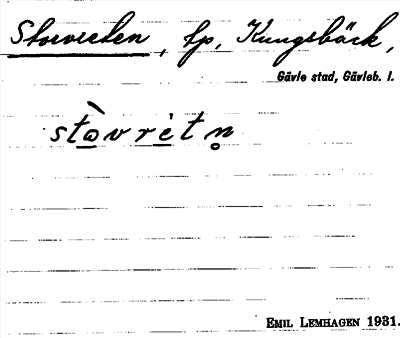 Storvreten, lp, Kungsbäck,
Gävle stad, Gävleb. l.
stòvrètn̥
EMIL LEMHAGEN 1931.